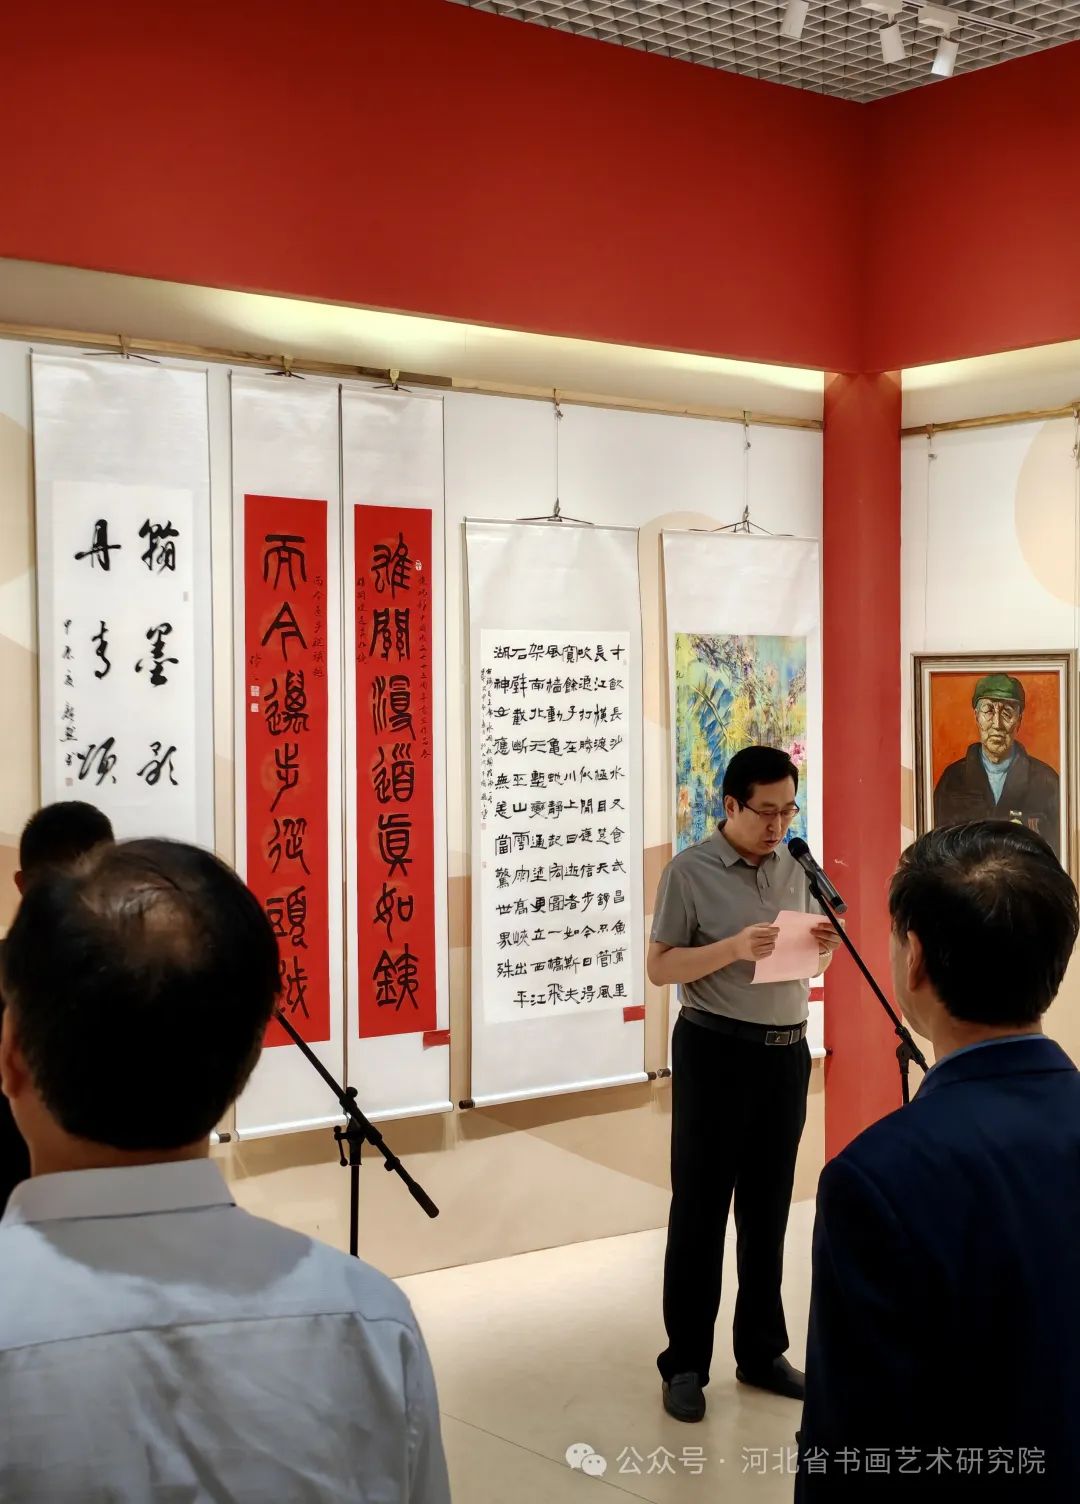 翰墨
丹青頌
雄關漫道真如銕
而今邁步從頭越
才飲長沙水又食武昌魚萬里
長江橫渡極目楚天舒不管風
吹浪打勝似閒庭信步今日得
寬餘子在川上曰逝者如斯夫
風檣動龜蛇靜起宏圖一橋飛
架南北天塹變通塗更立西江
石壁截斷巫山雲雨高峽出平
湖神女應無恙當驚世界殊
公众号·河北省书画艺术研究院